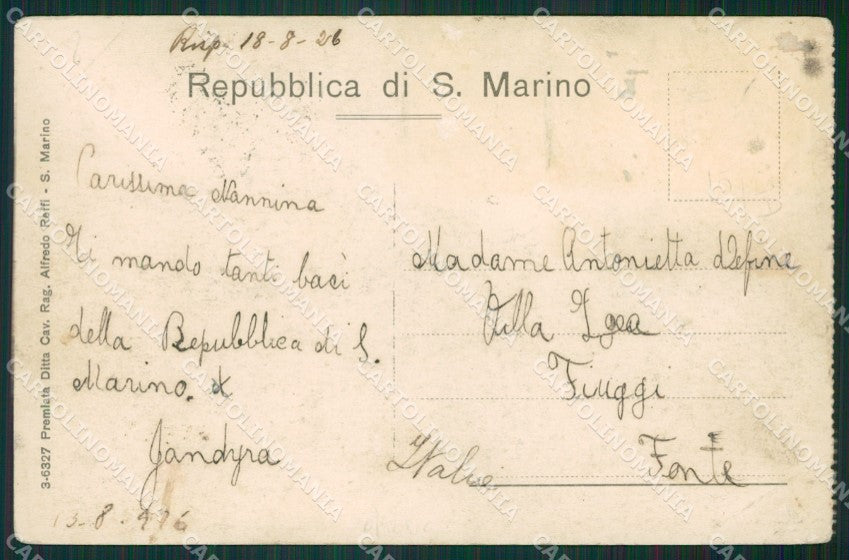 Risp. 18-8-26
Repubblica di S. Marino
Carissima Nannina
Ti mando tanti baci
della Repubblica di S.
Marino.
Jandyra
13-8-926
Madame Antonietta
Villa Igea
Fiuggi
Fonte
Italie
3-6327 Premiata Ditta Cav. Rag. Alfredo Reffi - S. Marino
CARTOLINOMANIA